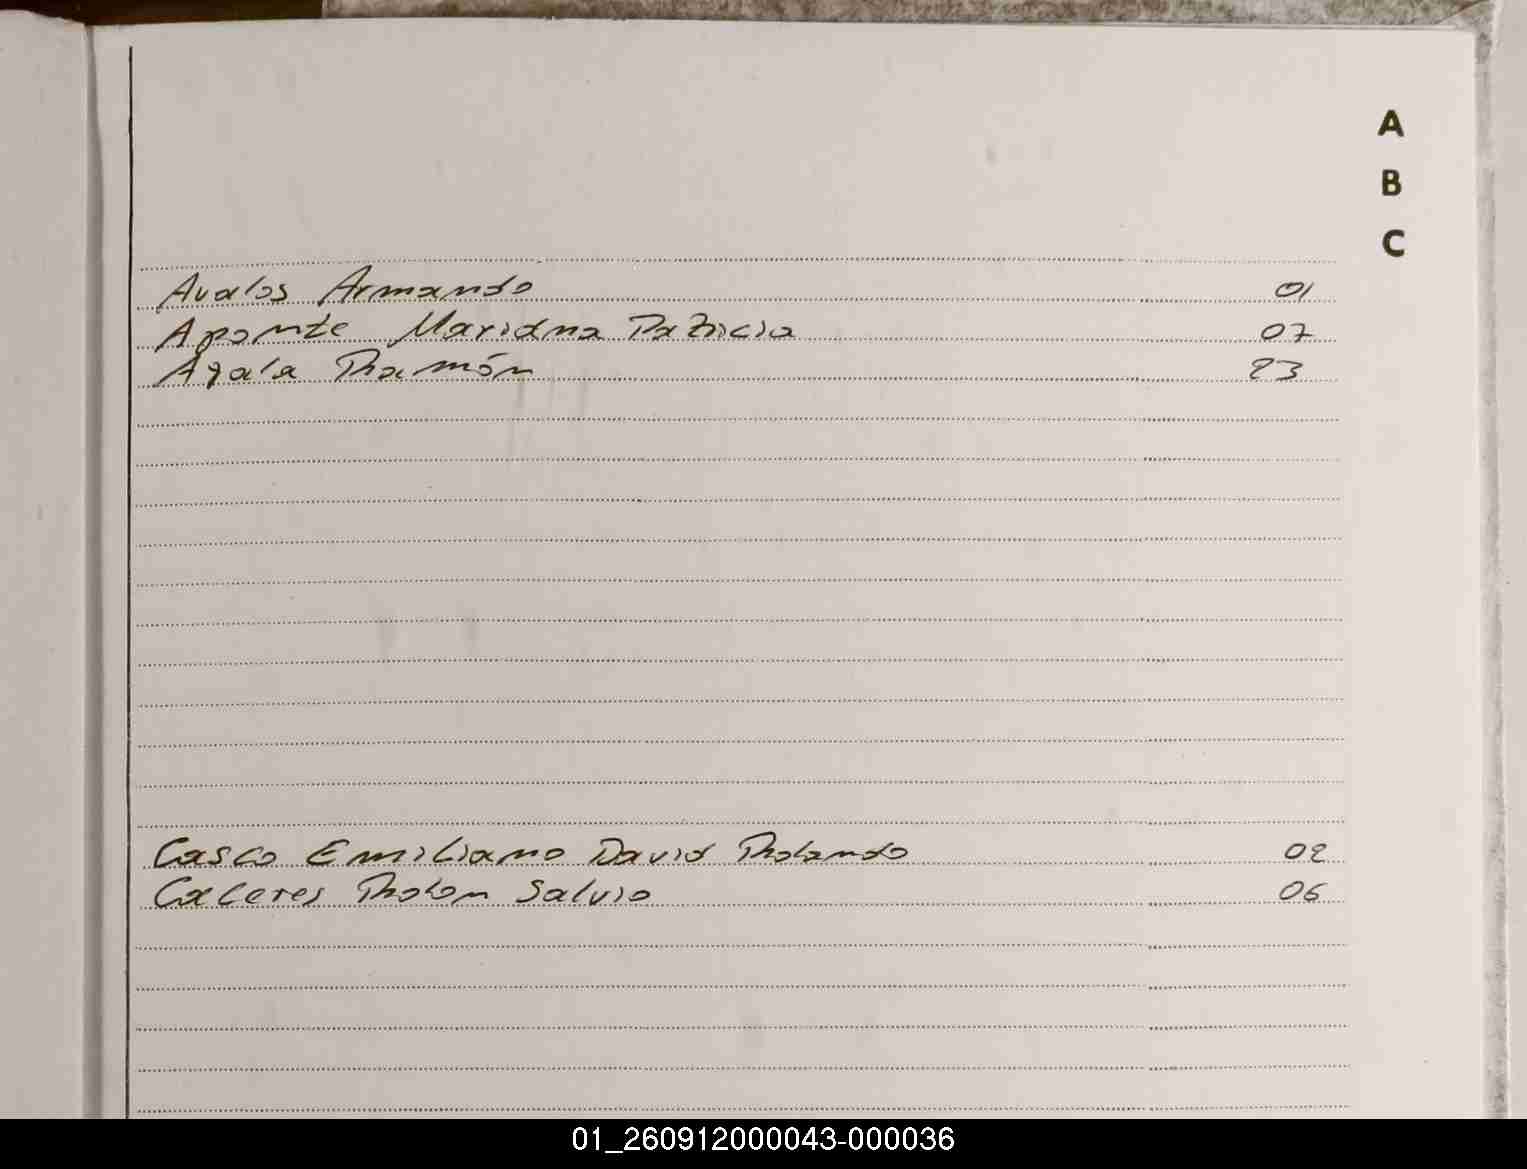 A
B
C
Avalos Armando 01
Aponte Mariana Patricia 07
Ayala Ramón 23
Casco Emiliano David Rolando 02
Caceres Rolon Salvio 06
01_260912000043-000036